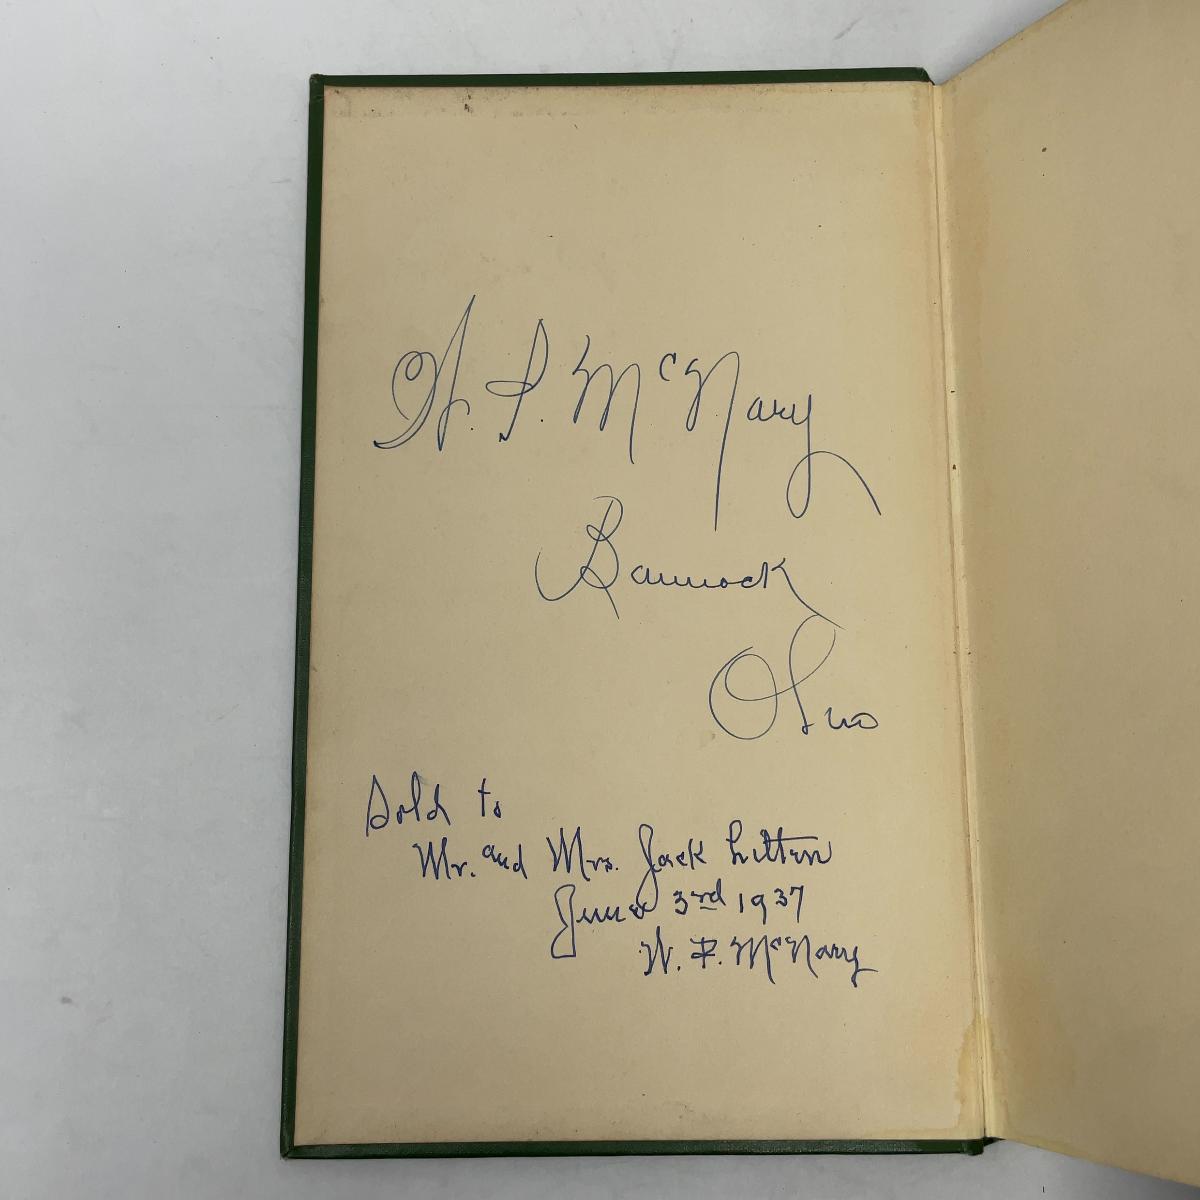 W. F. McNary
Bannock
Ohio
Sold to
Mr. and Mrs. Jack Litten
June 3rd 1937
W. F. McNary